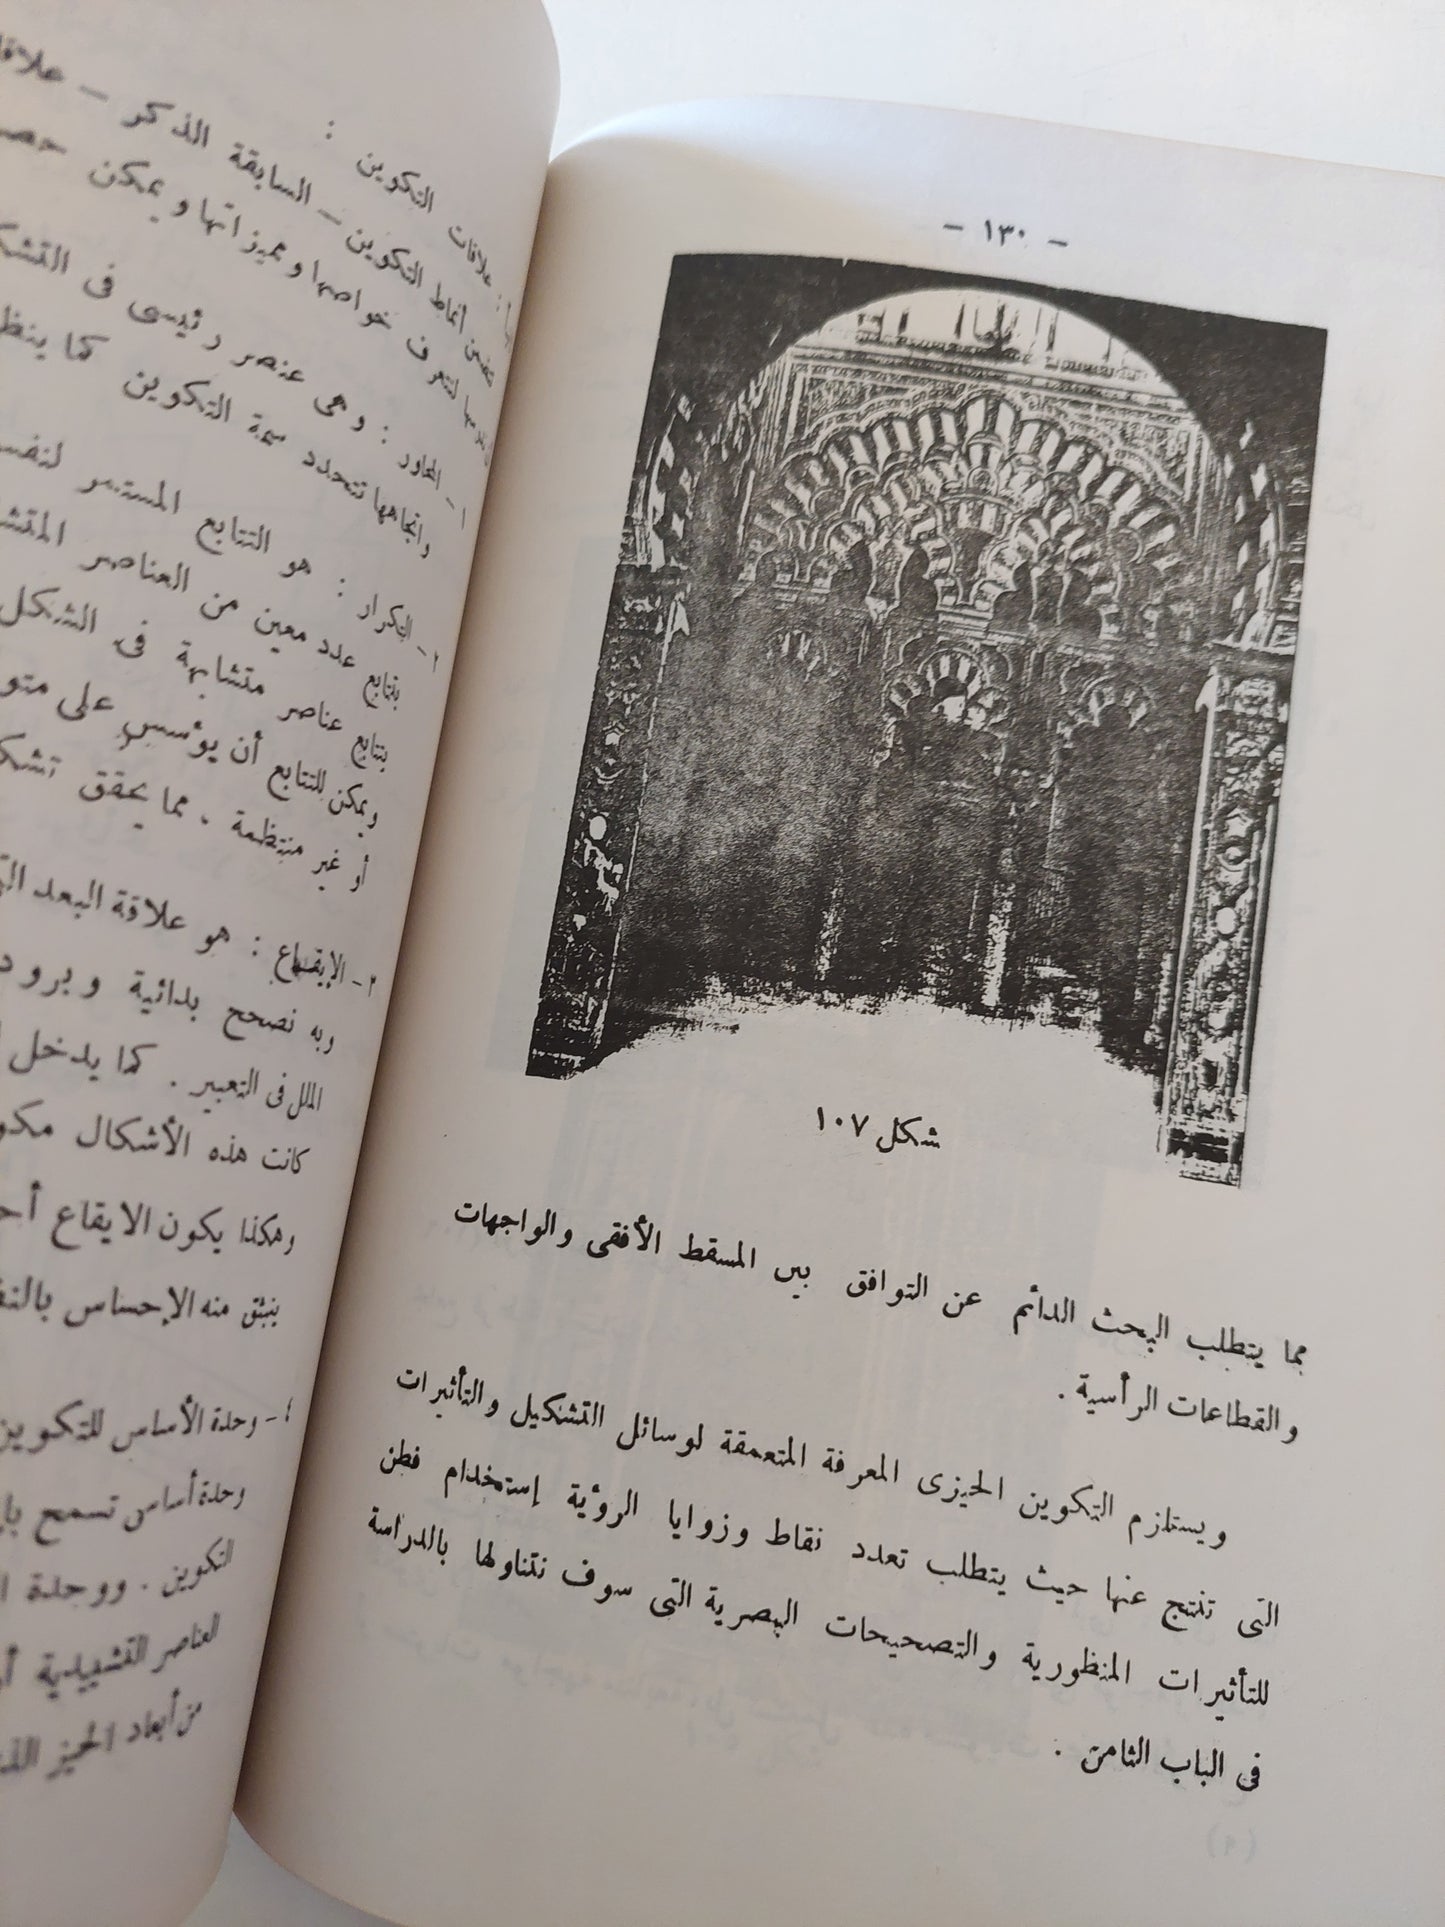 - ١٣٠ -
شكل ١٠٧
مما يتطلب البحث الدائم عن التوافق بين المسقط الأفقى والواجهات
والقطاعات الرأسية .
ويستلزم التكوين الحيزى المعرفة المتعمقة لوسائل التشكيل والتأثيرات
التى تنتج عنها حيث يتطلب تعدد نقاط وزوايا الرؤية إستخدام فطن
للتأثيرات المنظورية والتصحيحات البصرية التى سوف نتناولها بالدراسة
فى الباب الثامن .
علاقات التكوين :
تتضمن أنماط التكوين - السابقة الذكر -
لنتعرف خواصها ومميزاتها ويمكن
١ - المحاور : وهى عنصر رئيسى فى
واتجاهها تتحدد سمة التكوين كما
٢ - التكرار : هو التتابع المستمر
بتتابع عدد معين من العناصر
بتتابع عناصر متشابهة فى الشكل
ويمكن للتتابع أن يؤسس على
أو غير منتظمة . مما يحقق
- الإيقاع : هو علاقة البعد
وبه نصحح بدائية
الملل فى التعبير . كما يدخل
كانت هذه الأشكال
وهكذا يكون الايقاع
ينبثق منه الإحساس
٤ - وحدة الأساس للتكوين
وحدة أساس تسمح
التكوين . ووحدة
العناصر التشكيلية
من أبعاد الحيز